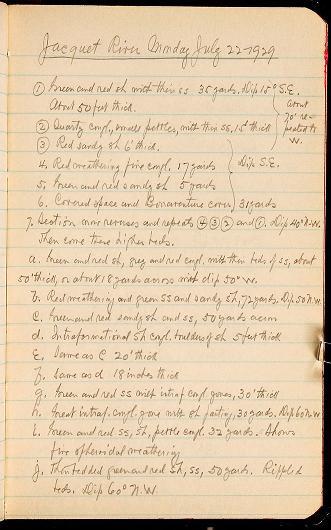 Jacquet River Monday July 22-1929
① Green and red sh with thin ss 35 yards. Dip 15° S.E.
About 50 feet thick.
② Quartz cngl, small pebbles, with thin ss, 15' thick
about
70' re-
peated to
W.
③ Red sandy sh 6' thick.
4. Red weathering fine cngl. 17 yards
Dip S.E.
5. Green and red sandy sh 5 yards
6. Covered space and Bonaventure cover, 31 yards
7. Section now reverses and repeats ④ ③ ② and ①. Dip 40° N.W.
Then come these higher beds.
a. Green and red sh, grey and red cngl, with thin beds of ss, about
50' thick, or about 18 yards across with dip 50° W.
b. Red weathering and green ss and sandy sh, 72 yards. Dip 50 N.W.
c. Green and red sandy sh and ss, 50 yards across
d. Intraformational sh cngl, boulders of sh 5 feet thick
E. Same as C 20' thick
f. Same as d 18 inches thick
g. Green and red ss with intraf. cngl zones, 30' thick
h. Great intraf. cngl zone with sh parting, 30 yards. Dip 60 N.W.
i. Green and red ss, sh, pebble cngl. 32 yards. Shows
fine spheroidal weathering
j. Thin bedded green and red sh, ss, 50 yards. Rippled
beds. Dip 60° N.W.